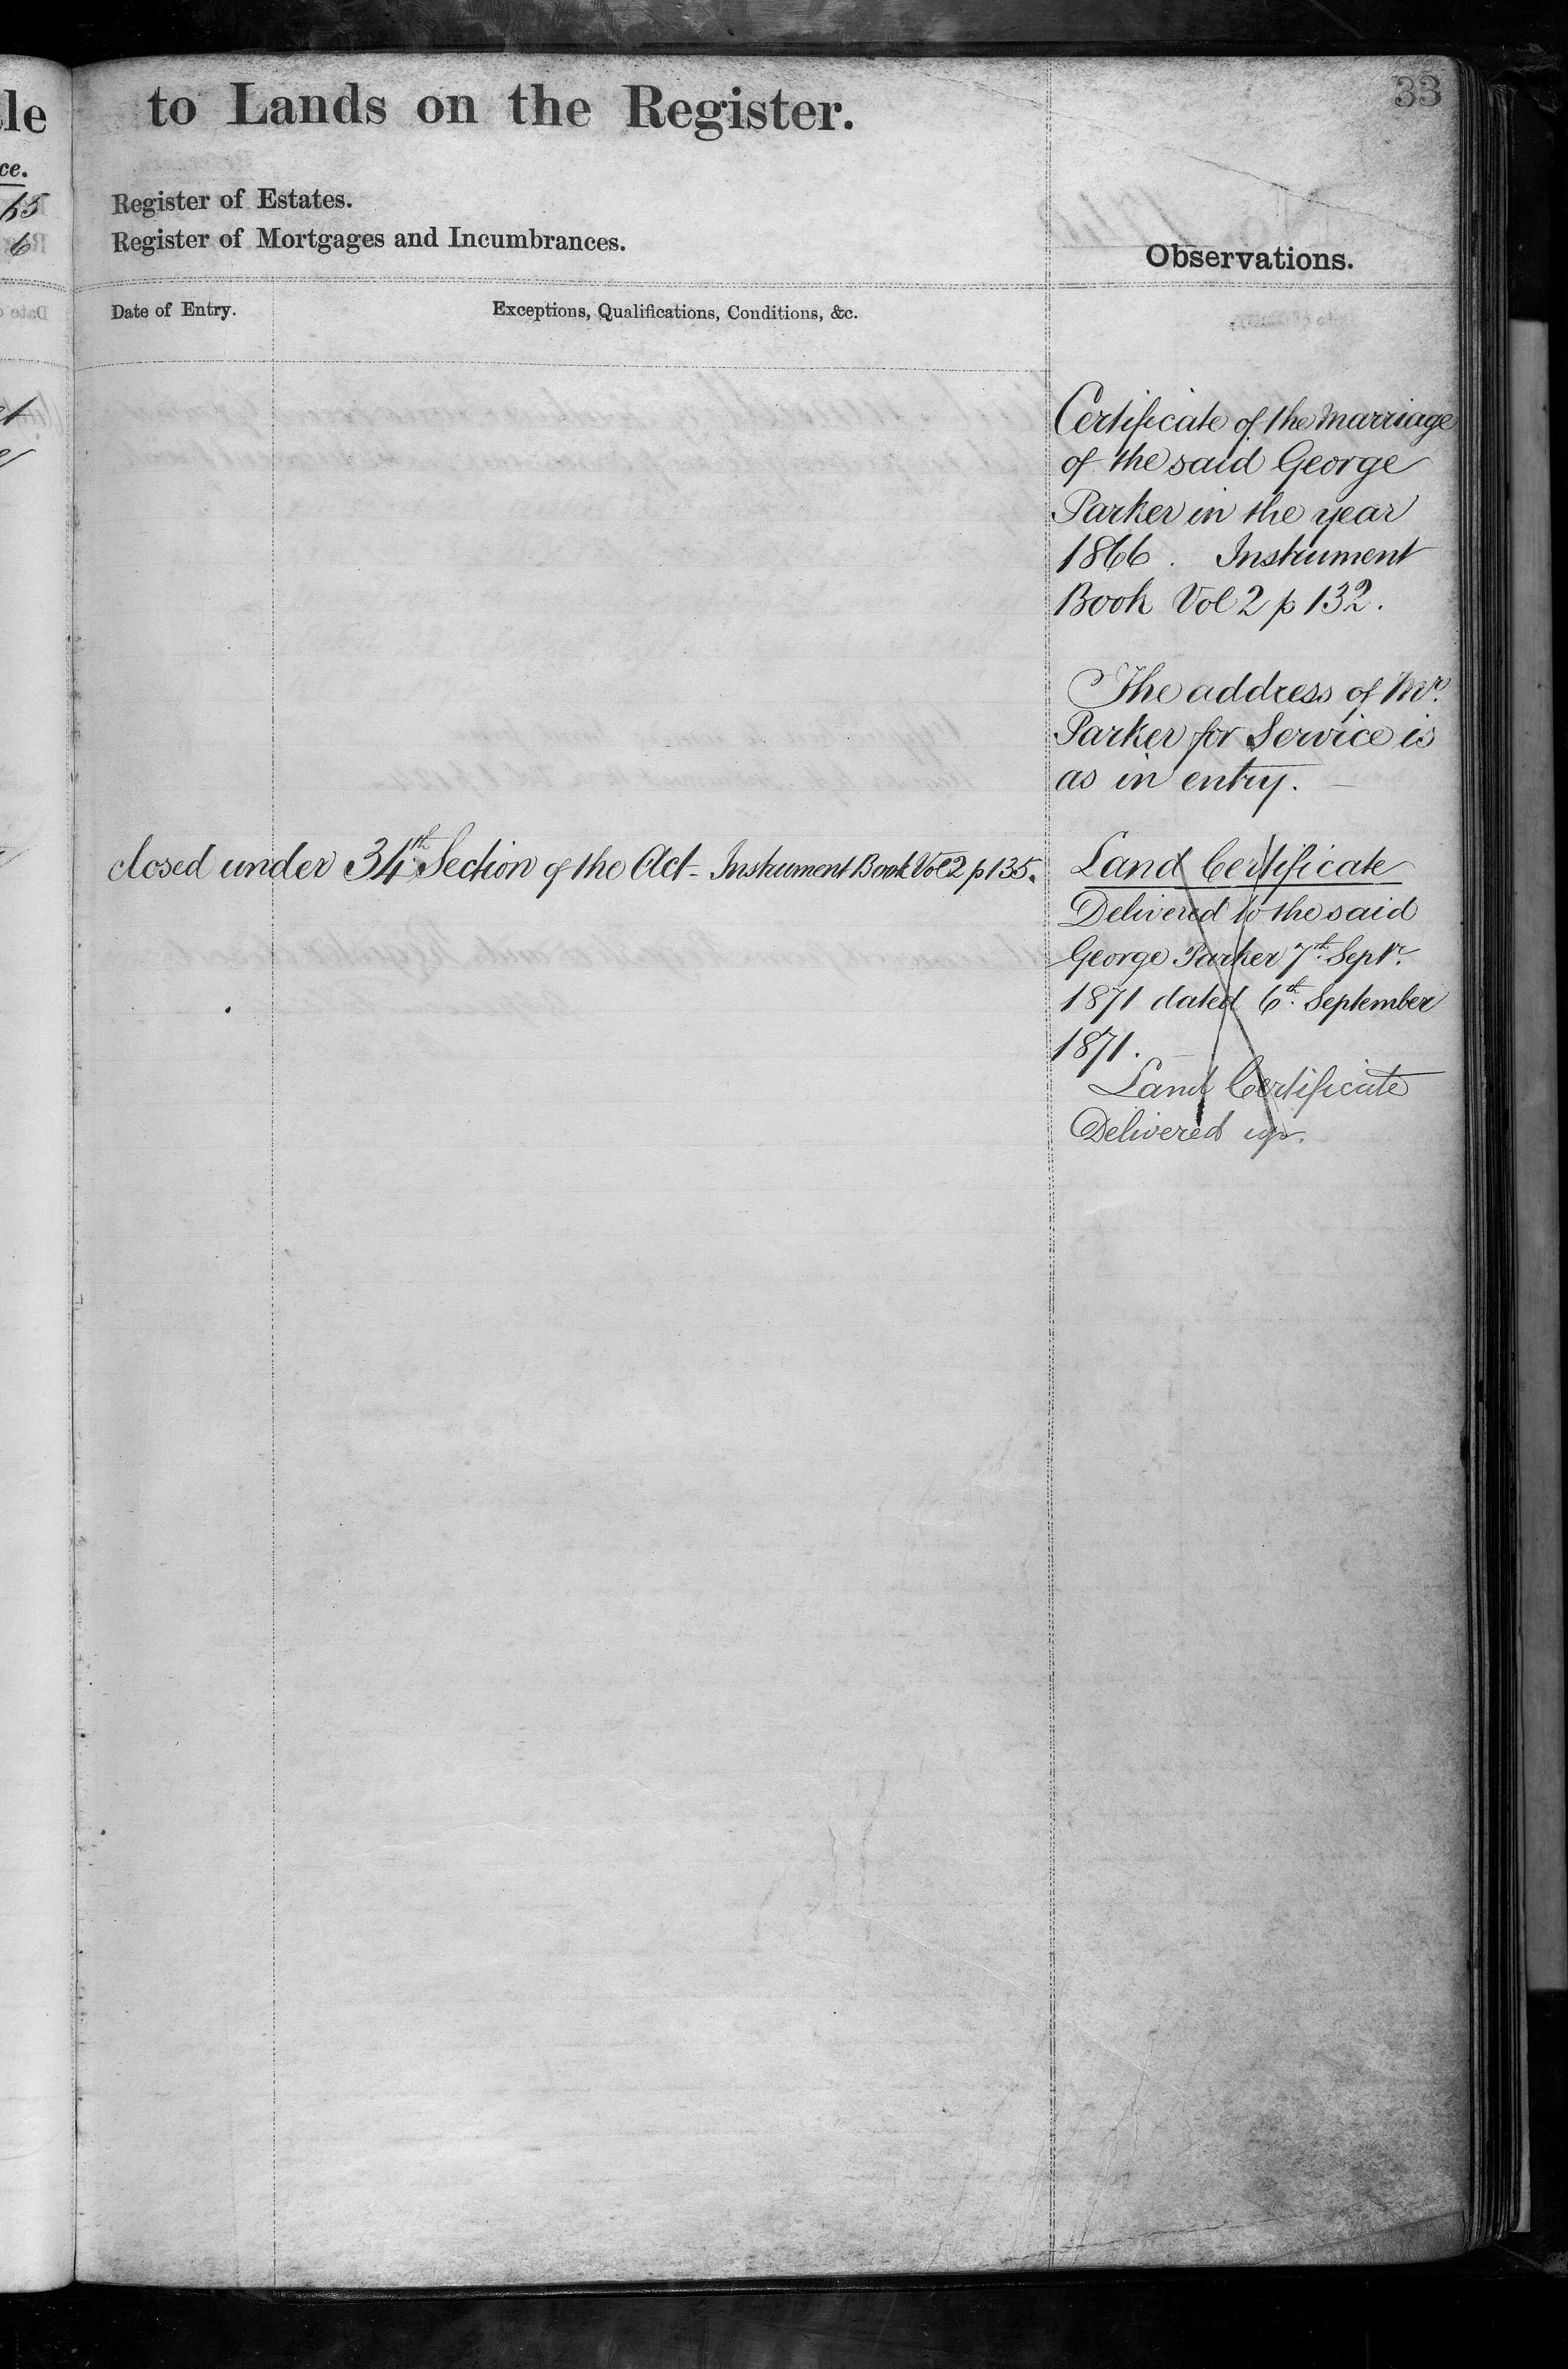 33
to Lands on the Register.
Register of Estates.
Register of Mortgages and Incumbrances.
Observations.
Date of Entry.
Exceptions, Qualifications, Conditions, &c.
Certificate of the Marriage
of the said George
Parker in the year
1866. Instrument
Book Vol 2 p 132.
The address of Mr.
Parker for Service is
as in entry.
closed under 34th Section of the Act - Instrument Book Vol 2 p 135.
Land Certificate
Delivered to the said
George Parker 7th Septr.
1871 dated 6th September
1871.
Land Certificate
Delivered up.